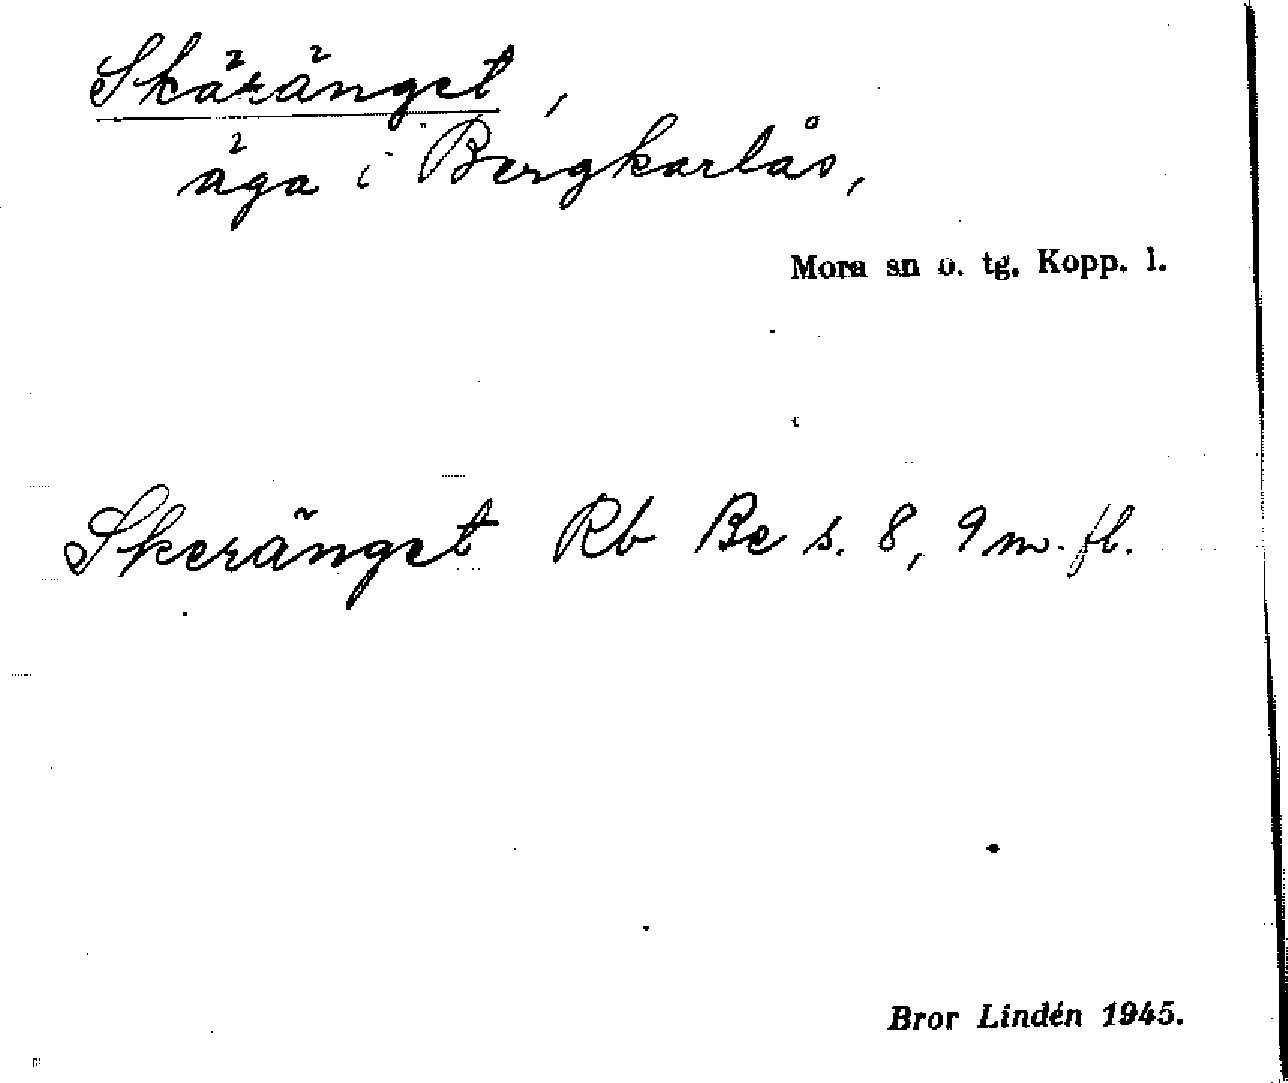 Skäränget,
äga i Bergkarlås,
Mora sn o. tg. Kopp. l.
Skeränget Rb Be s. 8, 9 m. fl.
Bror Lindén 1945.